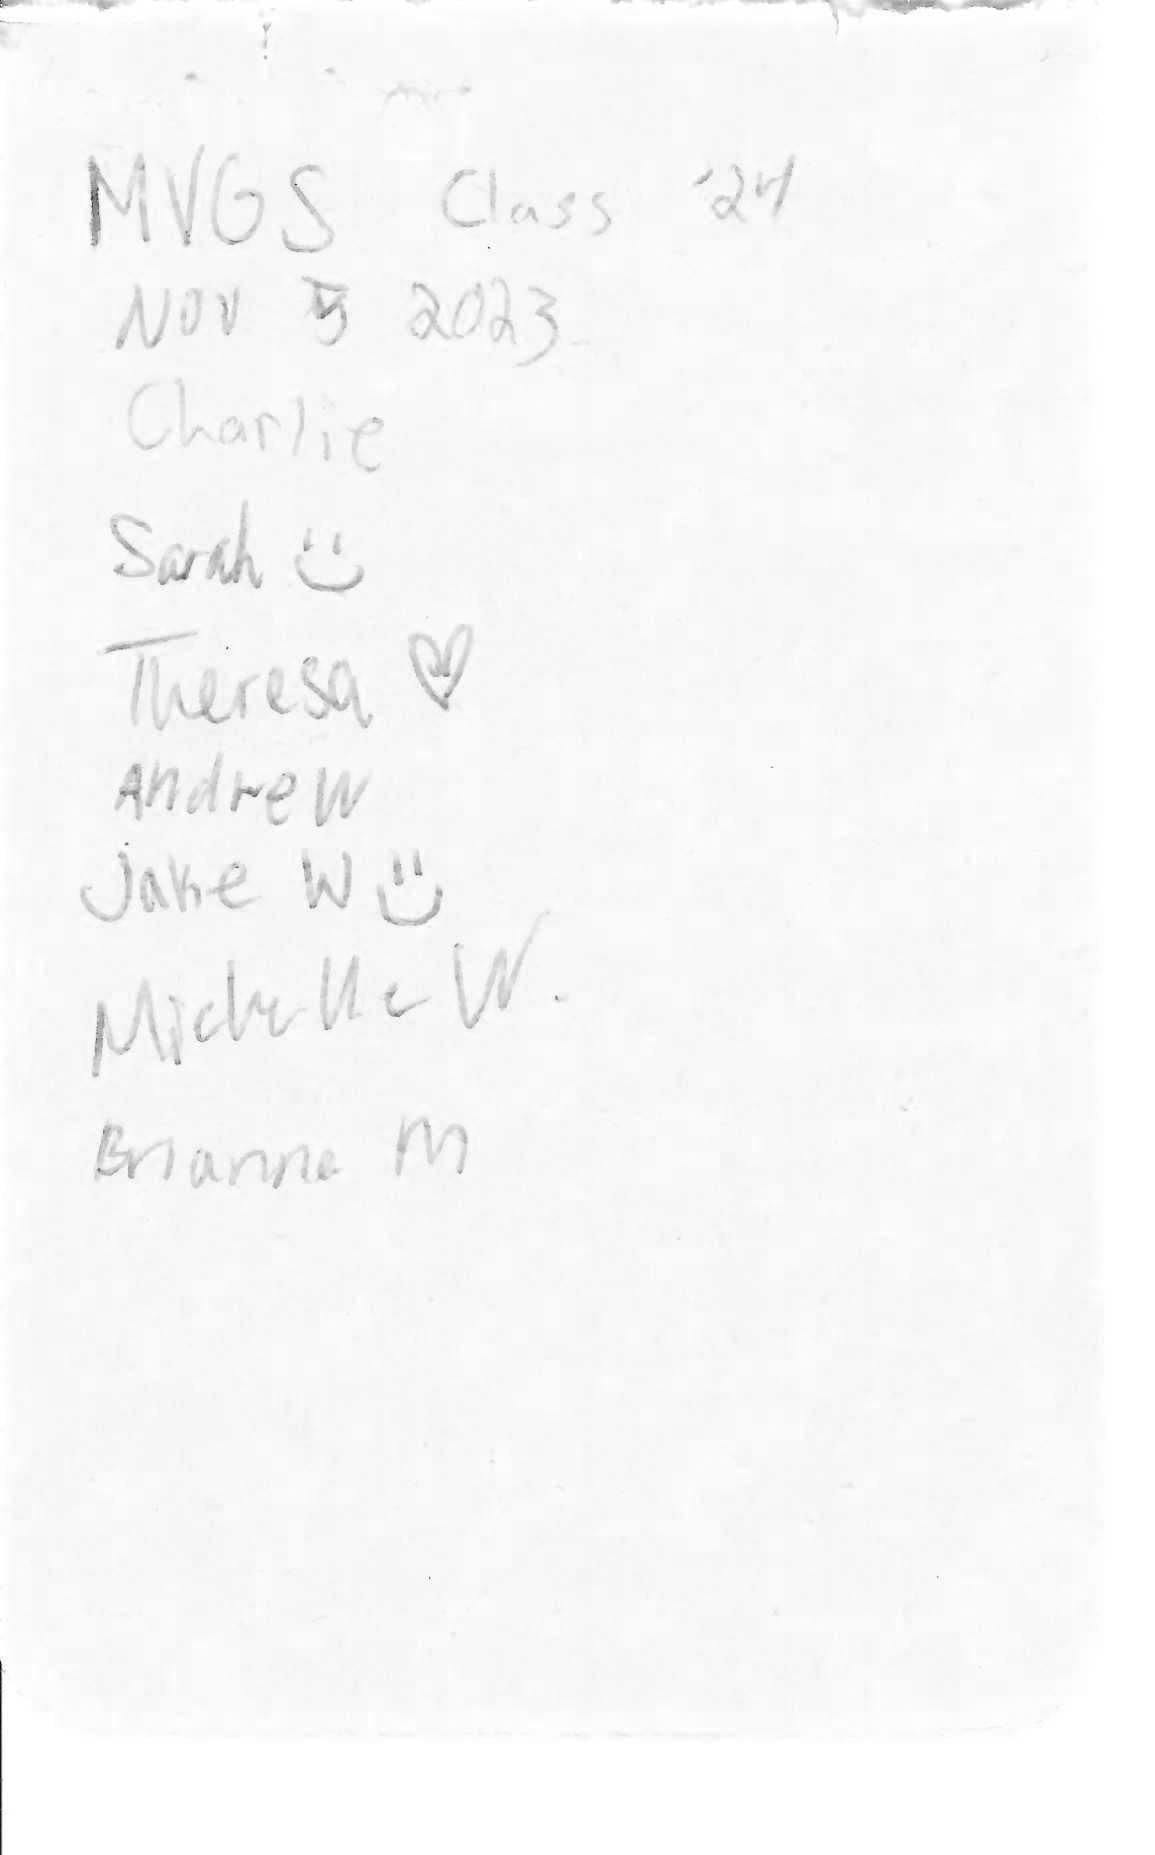 MVGS Class '24
Nov 5 2023
Charlie
Sarah
Theresa
Andrew
Jake W
Michelle W.
Brianna M